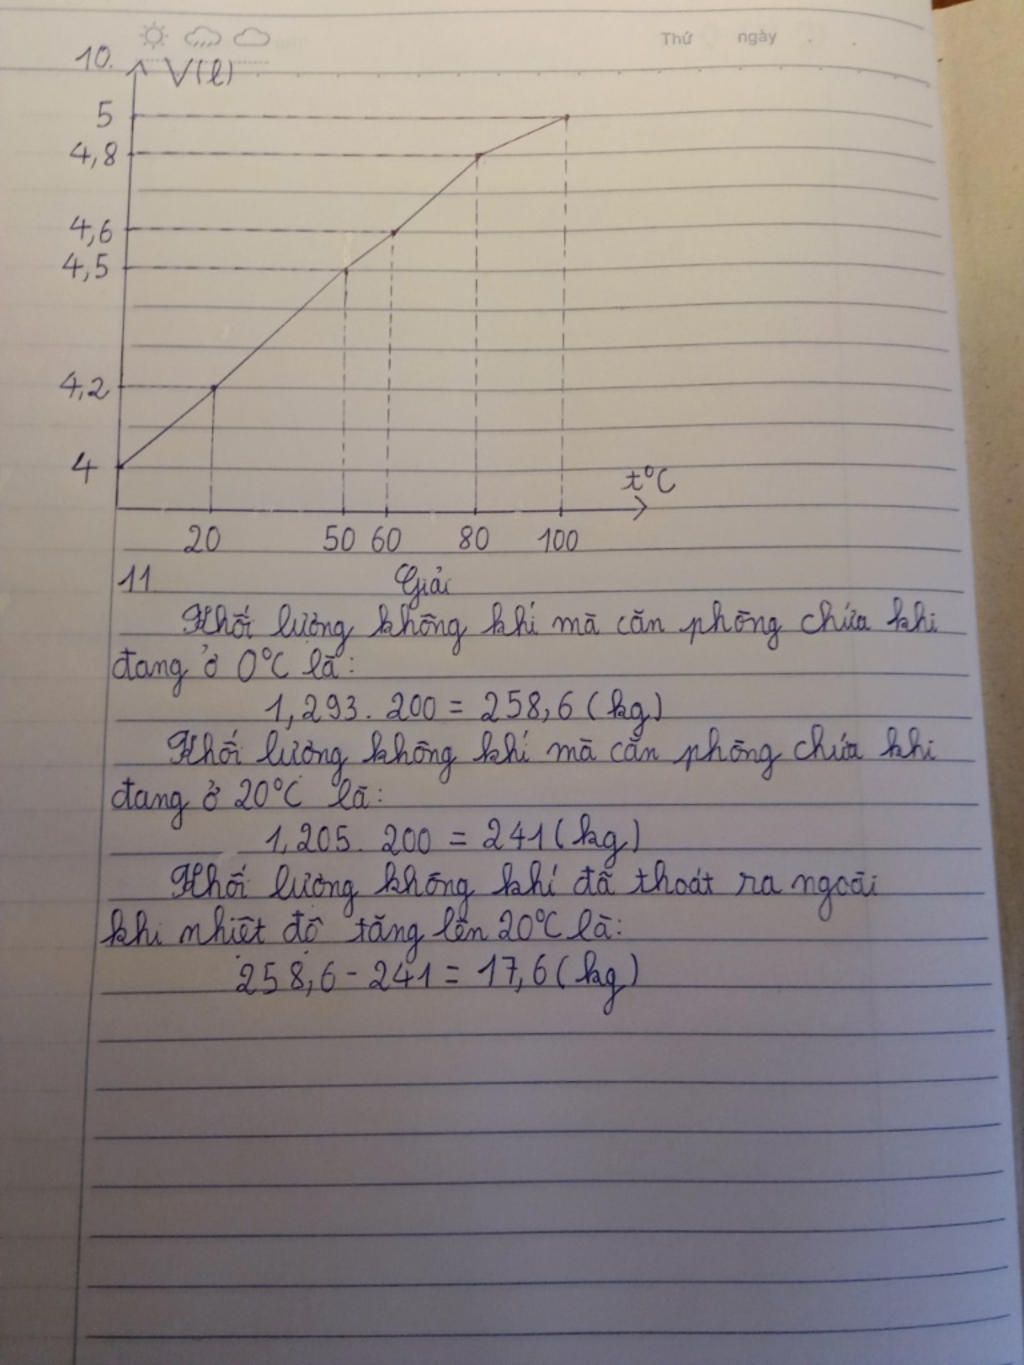 Thứ ngày
10.
V(l)
5
4,8
4,6
4,5
4,2
4
t°C
20 50 60 80 100
11 Giải
Khối lượng không khí mà căn phòng chứa khi
đang ở 0°C là:
1,293. 200 = 258,6 (kg)
Khối lượng không khí mà căn phòng chứa khi
đang ở 20°C là:
1,205. 200 = 241 (kg)
Khối lượng không khí đã thoát ra ngoài
khi nhiệt độ tăng lên 20°C là:
258,6 - 241 = 17,6 (kg)